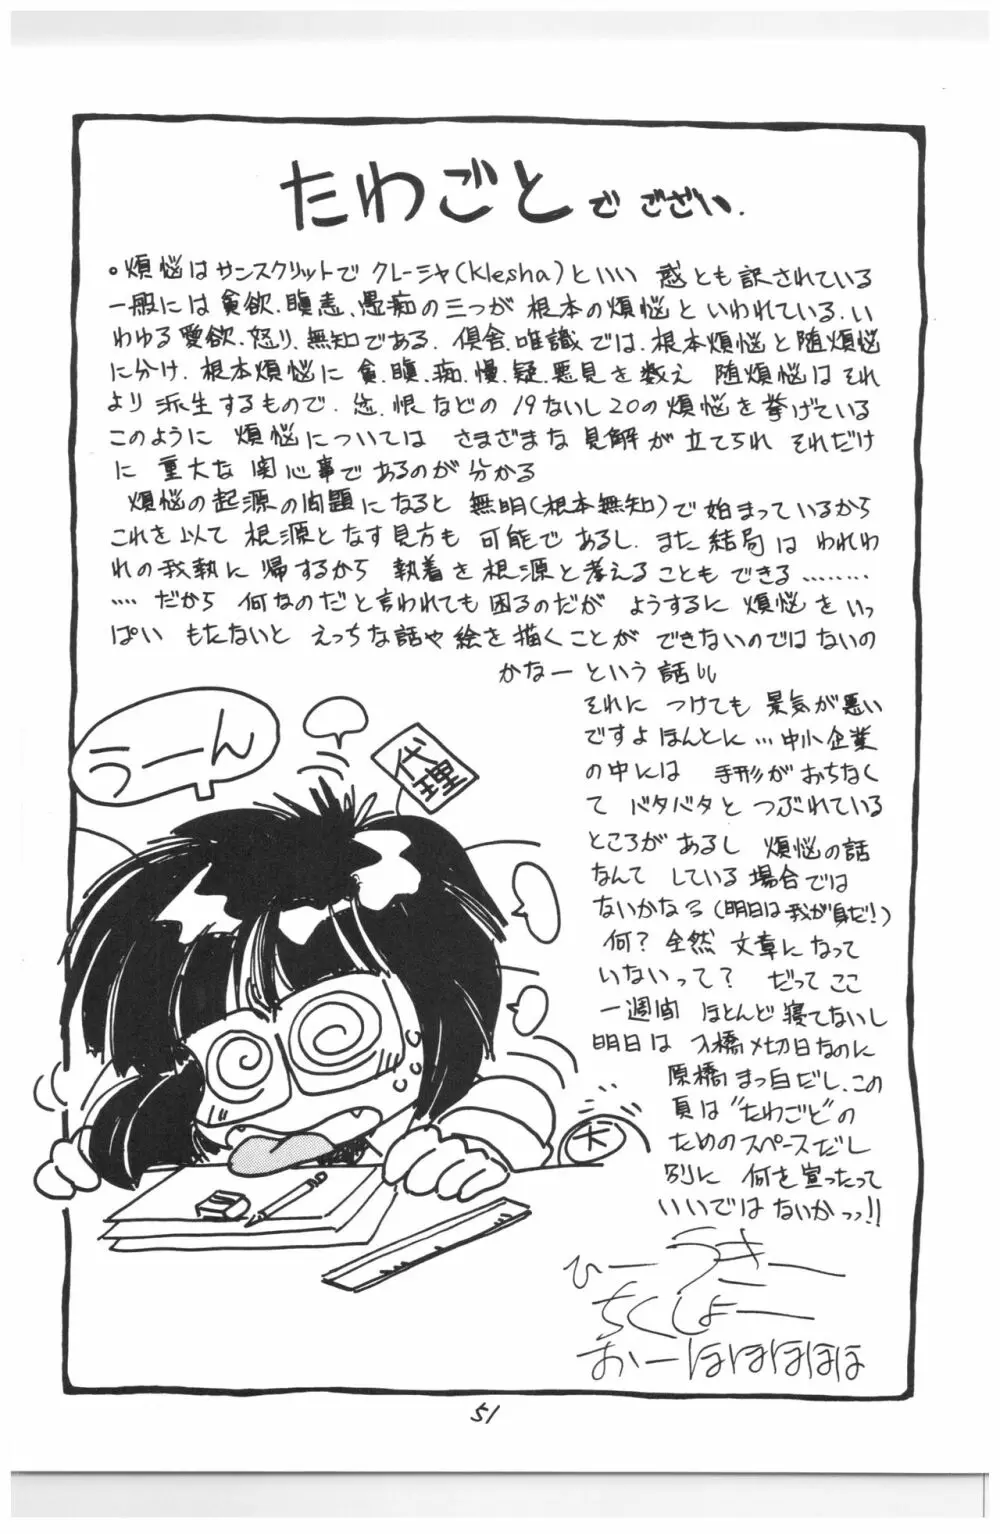 たわごとでござい.
。煩悩はサンスクリットでクレーシャ(Klesha)といい 惑とも訳されている
一般には貪欲.瞋恚、愚痴の三つが根本の煩悩といわれている.い
わゆる愛欲.怒り.無知である.倶舎.唯識では.根本煩悩と随煩悩
に分け.根本煩悩に貪.瞋.痴.慢.疑.悪見を数え 随煩悩はそれ
より派生するもので.忿.恨などの19ないし20の煩悩を挙げている
このように 煩悩については さまざまな見解が立てられ それだけ
に 重大な関心事であるのが分かる
煩悩の起源の問題になると 無明(根本無知)で始まっているから
これを以て 根源となす見方も可能であるし.また結局は われわ
れの我執に帰するから 執着を根源と考えることもできる………
…. だから 何なのだと言われても困るのだが ようするに煩悩をいっ
ぱい もたないと えっちな話や絵を描くことが できないのではないの
かなーという話
それに つけても景気が悪い
ですよほんとに…中小企業
の中には 手形がおちなく
て バタバタと つぶれている
ところが あるし 煩悩の話
なんて している場合では
ないかなる(明日は我が身だ!)
何? 全然 文章になって
いないって? だって ここ
一週間 ほとんど寝てないし
明日は 入稿〆切日なのに
原稿まっ白だし.この
頁は"たわごと"の
ためのスペースだし
別に 何を宣ったって
いいではないかっっ!!
ひーうきー
ちくしょー
おーほほほほほ
うーん
代理
大
51